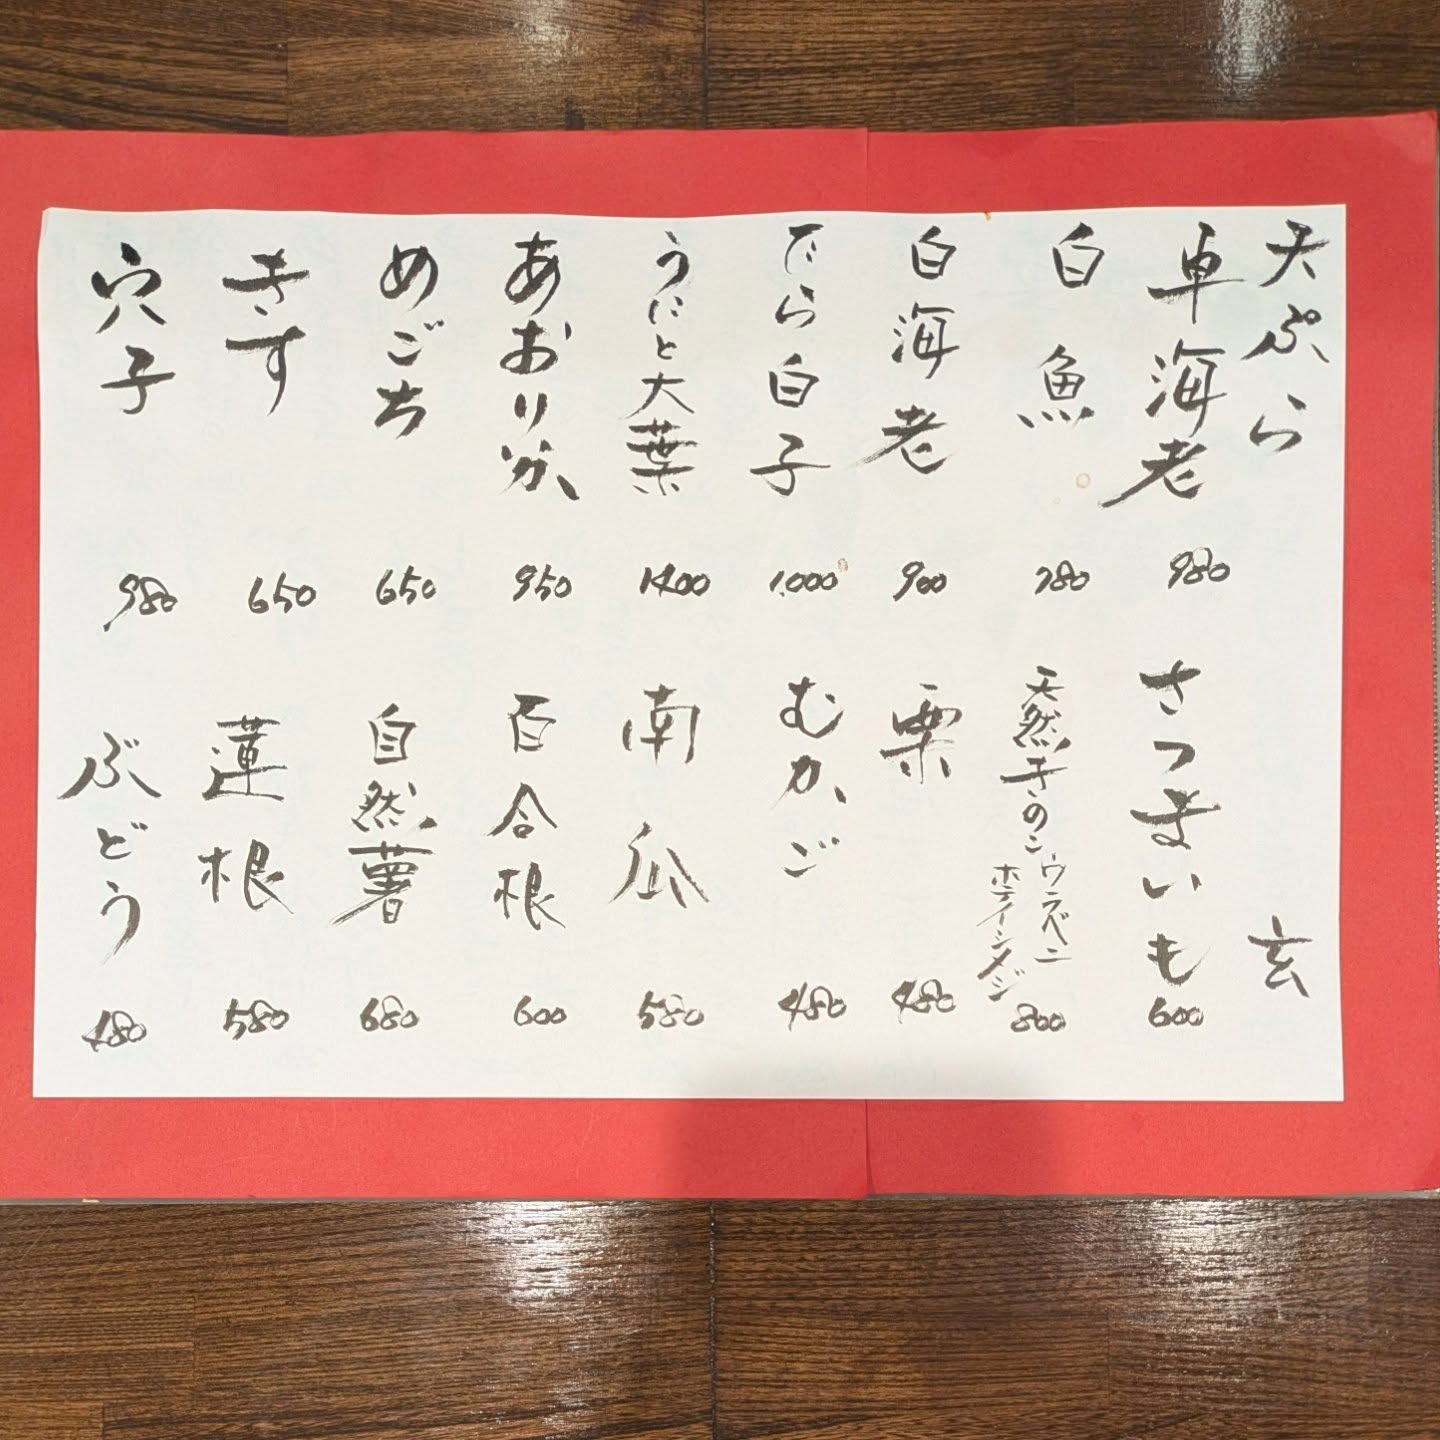 天ぷら 玄
車海老 980
白魚 780
白海老 900
たら白子 1,000
うにと大葉 1400
あおりいか 950
めごち 650
きす 650
穴子 980
さつまいも 600
天然きのこ ウラベニ ホテイシメジ 800
栗 480
むかご 480
南瓜 580
百合根 600
自然薯 680
蓮根 580
ぶどう 480